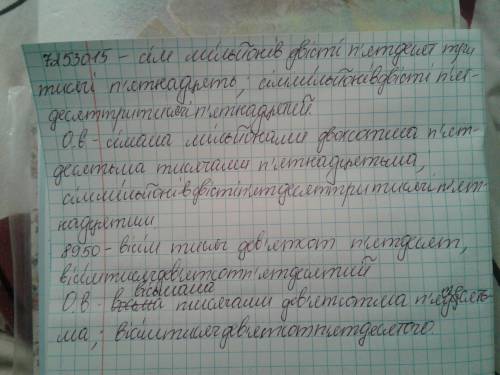 7253015 - сім мільйонів двісті п'ятдесят три
тисячі п'ятнадцять; сіммільйонівдвісті п'ят-
десяттритисячіп'ятнадцятий.
О.в - сімома мільйонами двомастами п'ят-
десятьма тисячами п'ятнадцятьма,
сіммільйонівдвістіп'ятдесяттритисячіп'ят-
надцятим.
8950 - вісім тисяч дев'ятсот п'ятдесят,
вісімтисячдев'ятсотп'ятдесятий
О.в - вісьмома тисячами дев'ятьма п'ятдесять-
ма; вісімтисячдев'ятсотп'ятдесятого